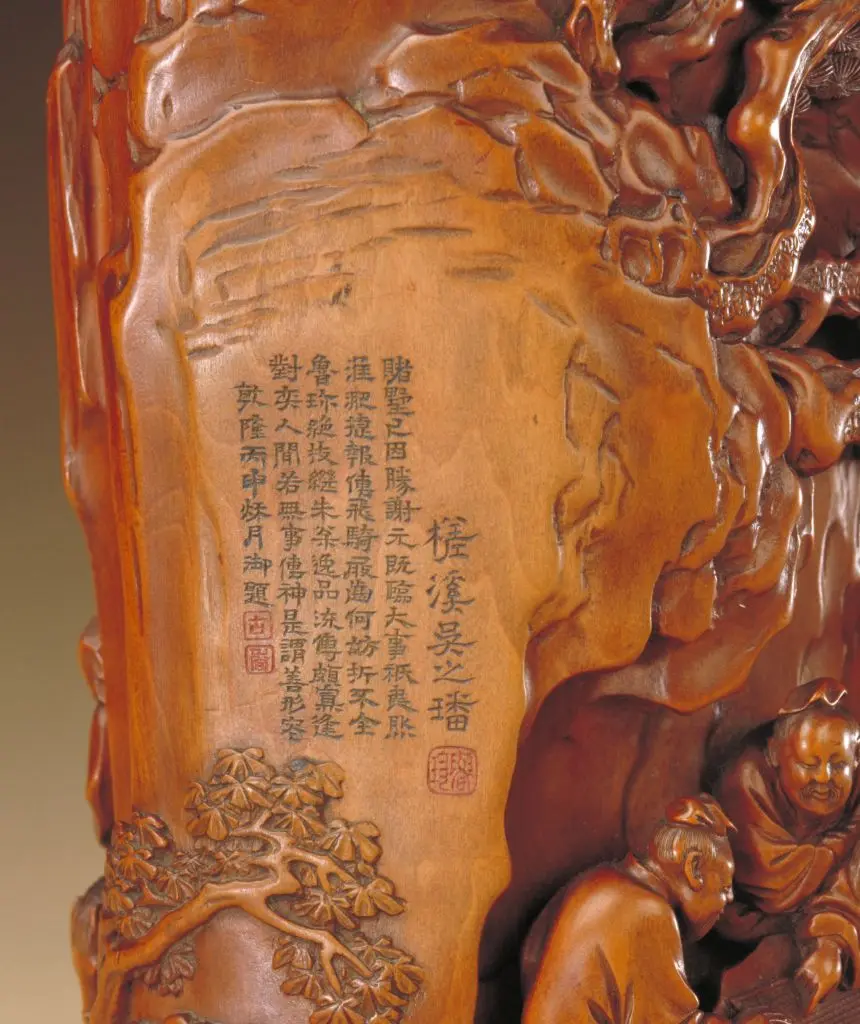 槎溪吳之璠
魯珍
賭墅已因勝謝元既臨大事祇夷肰
淮淝捷報傳飛騎屐齒何妨折不全
魯珍絕技繼朱逸品流傳頗逢
對奕人間若無事傳神是謂善形容
乾隆丙申秋月御題
古